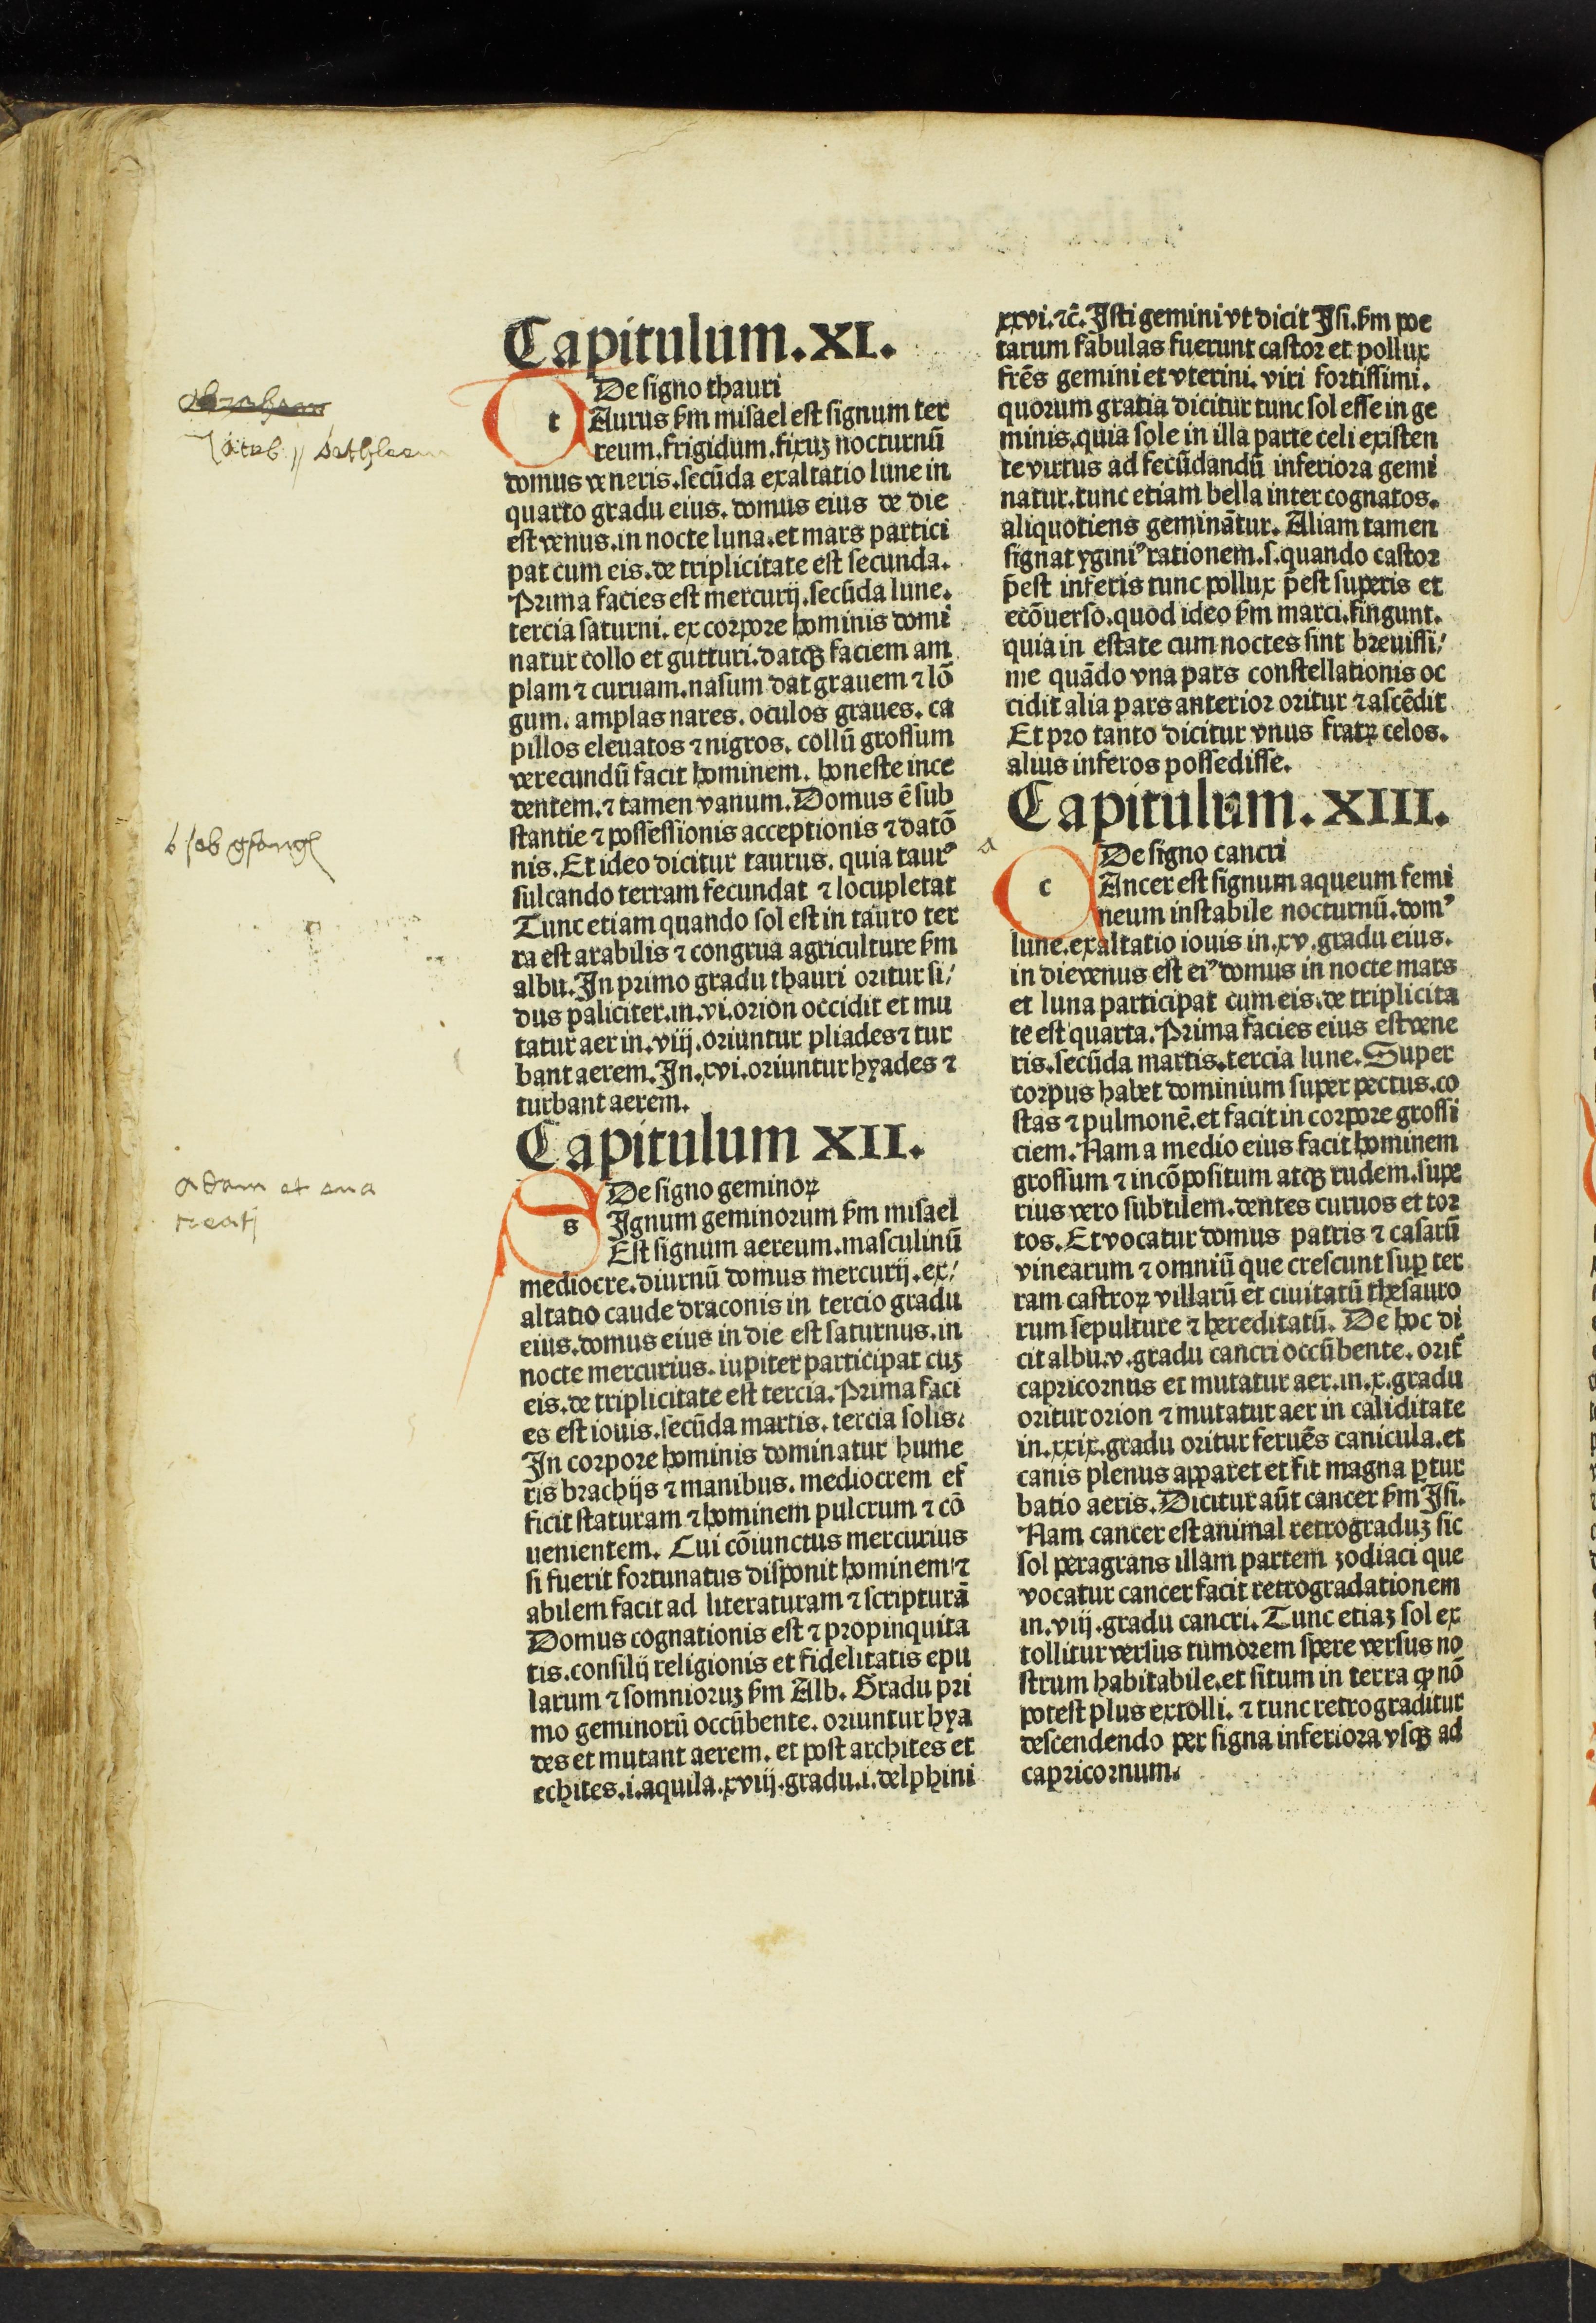 Capitulum.XI.
De signo thauri
t Aurus ẜm misael est signum ter
reum.frigidum.fixuꝫ nocturnū
domus veneris.secūda exaltatio lune in
quarto gradu eius. domus eius de die
est venus.in nocte luna.et mars partici
pat cum eis.de triplicitate est secunda.
Prima facies est mercurij.secūda lune.
tercia saturni. ex corpore hominis domi
natur collo et gutturi.datqꝫ faciem am
plam ⁊ curuam.nasum dat grauem ⁊ lō
gum. amplas nares. oculos graues. ca
pillos eleuatos ⁊ nigros. collū grossum
verecundū facit hominem. honeste ince
dentem.⁊ tamen vanum.Domus ē sub
stantie ⁊ possessionis acceptionis ⁊ datō
nis. Et ideo dicitur taurus. quia taurꝰ
sulcando terram fecundat ⁊ locupletat
Tunc etiam quando sol est in tauro ter
ra est arabilis ⁊ congrua agriculture ẜm
albu.In primo gradu thauri oritur si/
dus paliciter.in.vi.orion occidit et mu
tatur aer in.viij.oriuntur pliades ⁊ tur
bant aerem.In.xvi.oriuntur hyades ⁊
turbant aerem.
Capitulum XII.
De signo geminoꝝ
s Ignum geminorum ẜm misael
Est signum aereum.masculinū
mediocre.diurnū domus mercurij.ex/
altatio caude draconis in tercio gradu
eius.domus eius in die est saturnus.in
nocte mercurius. iupiter participat cuꝫ
eis.de triplicitate est tercia.Prima faci
es est iouis.secūda martis. tercia solis.
In corpore hominis dominatur hume
ris brachijs ⁊ manibus. mediocrem ef
ficit staturam ⁊ hominem pulcrum ⁊ cō
uenientem. Cui cōiunctus mercurius
si fuerit fortunatus disponit hominem ⁊
abilem facit ad literaturam ⁊ scripturā
Domus cognationis est ⁊ propinquita
tis.consilij religionis et fidelitatis epu
larum ⁊ somnioruꝫ ẜm Alb. Gradu pri
mo geminorū occūbente. oriuntur hya
des et mutant aerem. et post archites et
echites.i.aquila.xviij.gradu.i.delphini
xxvi.⁊c̄. Isti gemini vt dicit Isi.ẜm poe
tarum fabulas fuerunt castor et pollux
frēs gemini et vterini. viri fortissimi.
quorum gratia dicitur tunc sol esse in ge
minis.quia sole in illa parte celi existen
te virtus ad fecūdandū inferiora gemi
natur.tunc etiam bella inter cognatos.
aliquotiens geminātur. Aliam tamen
signat yginiꝰ rationem.s.quando castor
p̄est inferis tunc pollux p̄est superis et
ecōuerso.quod ideo ẜm marci.fingunt.
quia in estate cum noctes sint breuissi/
me quādo vna pars constellationis oc
cidit alia pars anterior oritur ⁊ ascēdit
Et pro tanto dicitur vnus fratꝝ celos.
alius inferos possedisse.
Capitulum.XIII.
De signo cancri
c Ancer est signum aqueum femi
neum instabile nocturnū.domꝰ
lune.exaltatio iouis in.xv.gradu eius.
in die venus est eiꝰ domus in nocte mars
et luna participat cum eis.de triplicita
te est quarta.Prima facies eius est vene
ris.secūda martis.tercia lune.Super
corpus habet dominium super pectus.co
stas ⁊ pulmonē.et facit in corpore grossi
ciem. Nam a medio eius facit hominem
grossum ⁊ incōpositum atqꝫ rudem.supe
rius vero subtilem.dentes curuos et tor
tos. Et vocatur domus patris ⁊ casarū
vinearum ⁊ omniū que crescunt suꝑ ter
ram castroꝝ villarū et ciuitatū thesauro
rum sepulture ⁊ hereditatū. De hoc di
cit albu.v.gradu cancri occūbente. orit᷑
capricornus et mutatur aer.in.x.gradu
oritur orion ⁊ mutatur aer in caliditate
in.xxix.gradu oritur feruēs canicula.et
canis plenus apparet et fit magna ꝑtur
batio aeris.Dicitur aūt cancer ẜm Isi.
Nam cancer est animal retrograduꝫ sic
sol peragrans illam partem zodiaci que
vocatur cancer facit retrogradationem
in.viij.gradu cancri. Tunc etiaꝫ sol ex
tollitur versus tumorem spere versus no
strum habitabile.et situm in terra ꝙ nō
potest plus extolli. ⁊ tunc retrograditur
descendendo per signa inferiora vsqꝫ ad
capricornum.
adam et eua
creati